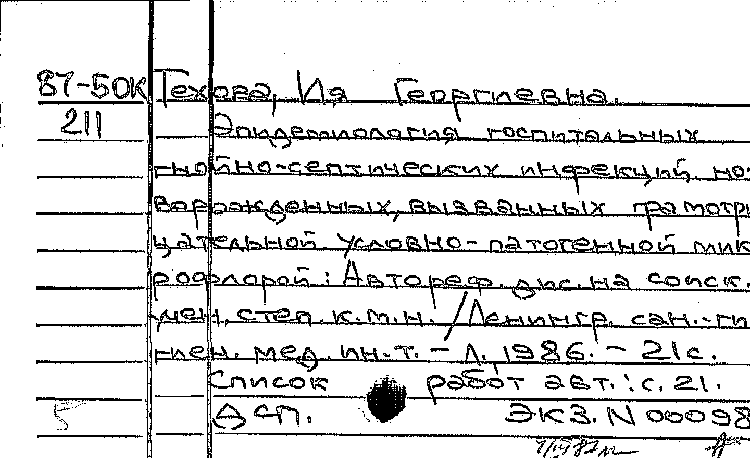 87-50К Техова, Ия Георгиевна.
211 Эпидемиология госпитальных
гнойно-септических инфекций но-
ворожденных, вызванных грамотри
цательной условно-патогенной мик
рофлорой: Автореф. дис. на соиск.
учен. степ. к.м.н. / Ленингр. сан.-ги
гиен. мед. ин.т. - Л., 1986. - 21 с.
Список работ авт.: с. 21.
5 ДСП. ЭКЗ. N 00098